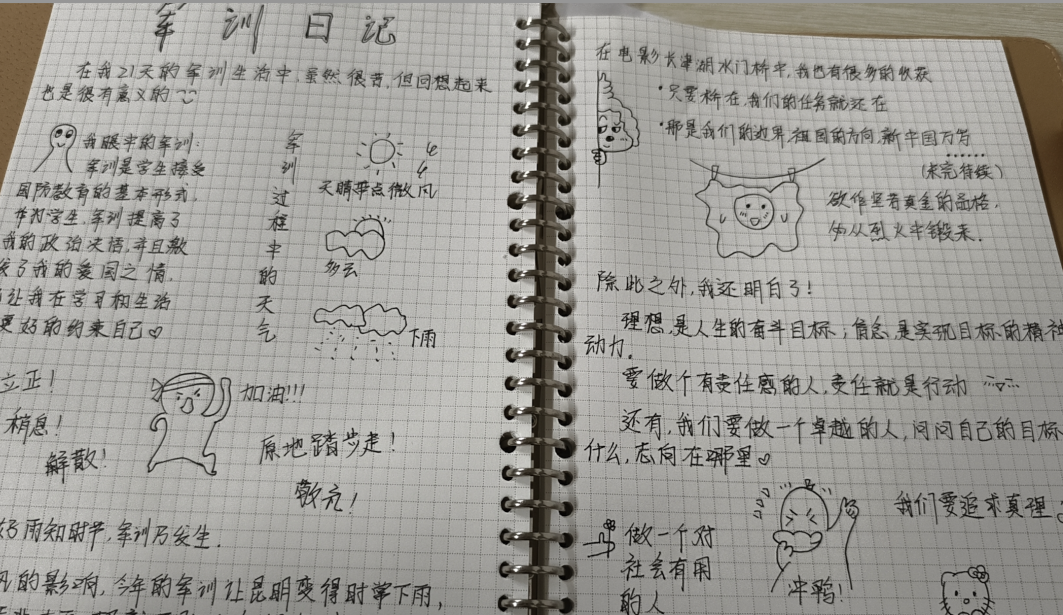 军训日记
在我21天的军训生活中,虽然很苦,但回想起来
也是很有意义的
我眼中的军训:
军训是学生接受
国防教育的基本形式,
作为学生,军训提高了
我的政治决悟,并且激
发了我的爱国之情,
让我在学习和生活
更好的约束自己♡
军训过程中的天气
天晴带点微风
多云
下雨
立正!
稍息!
解散!
加油!!!
原地踏步走!
敬礼!
好雨知时节,军训乃发生.
风的影响,今年的军训让昆明变得时常下雨,
在电影长津湖水门桥中,我也有很多的收获
·只要桥在,我们的任务就还在
·那是我们的边界,祖国的方向,新中国万岁
......
(未完待续)
欲作坚若真金的品格,
必从烈火中锻来.
除此之外,我还明白了!
理想,是人生的奋斗目标;信念,是实现目标的精神
动力.
要做个有责任感的人,责任就是行动
还有,我们要做一个卓越的人,问问自己的目标
什么,志向在哪里♡
做一个对
社会有用
的人
冲鸭!
我们要追求真理